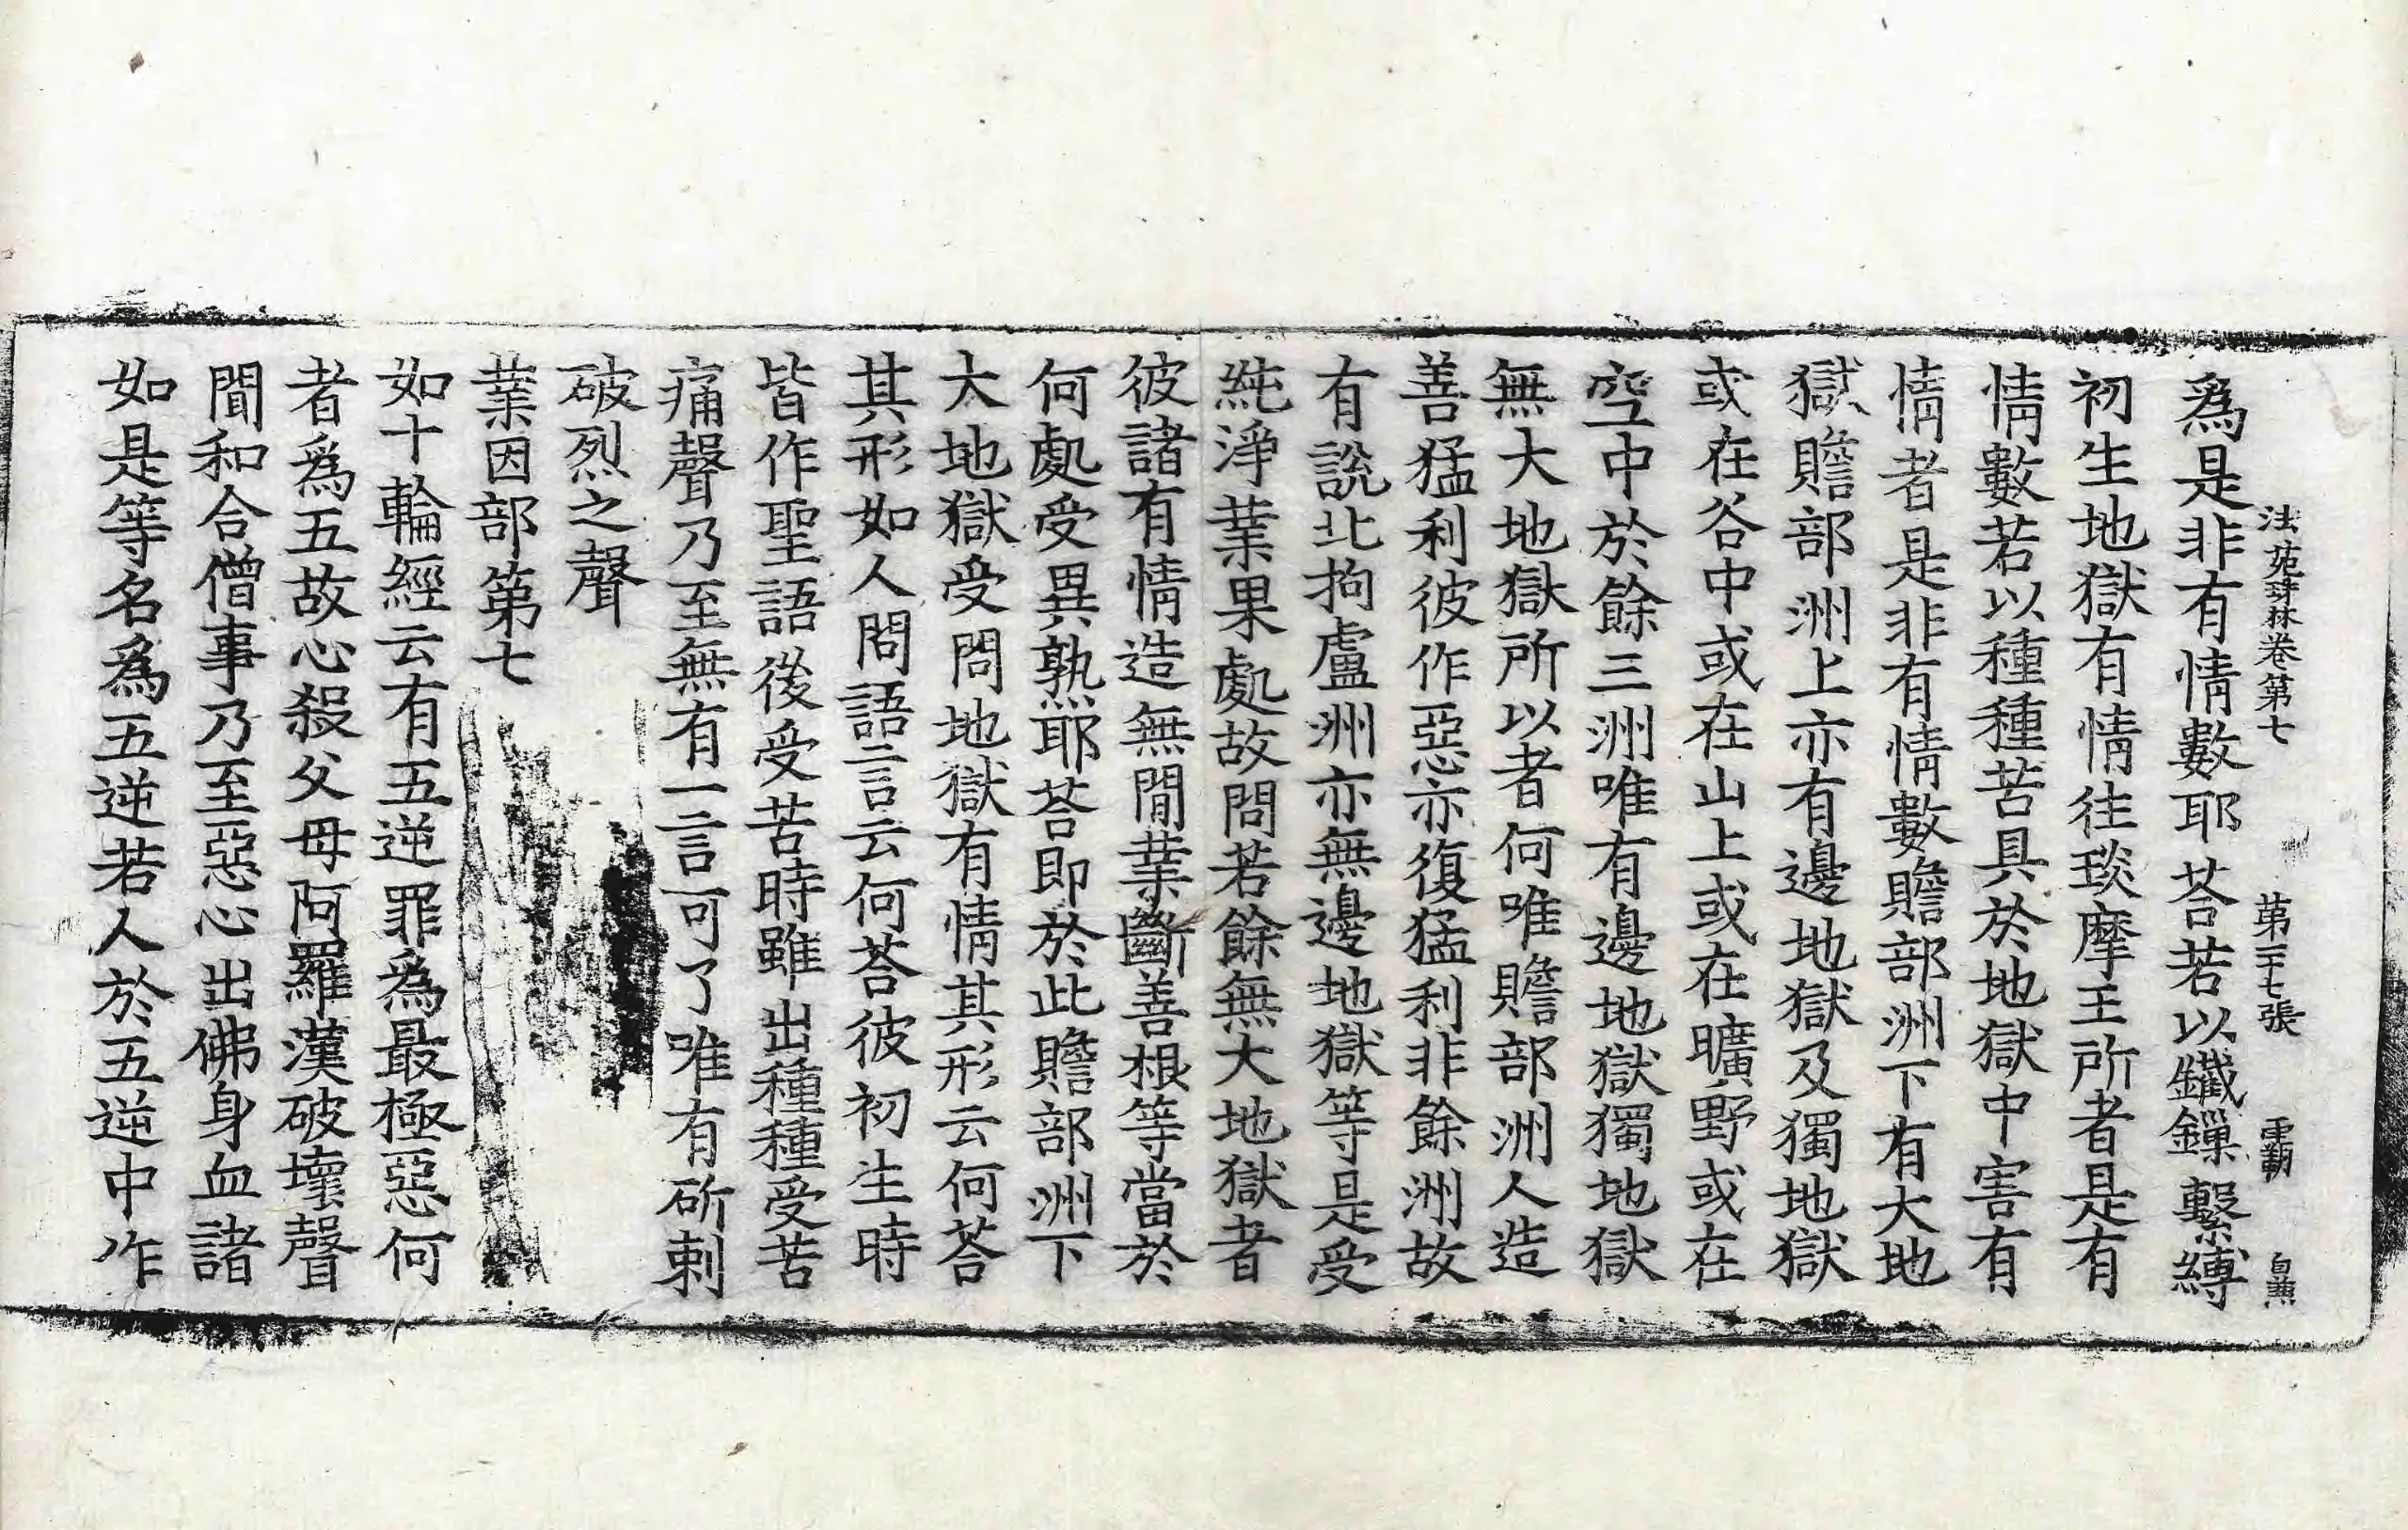 為是非有情數耶荅若以鐵鏁繫縛
法苑珠林卷第七 第二十七張 覇
初生地獄有情往琰摩王所者是有
情數若以種種苦具於地獄中害有
情者是非有情數贍部洲下有大地
獄贍部洲上亦有邊地獄及獨地獄
或在谷中或在山上或在曠野或在
空中於餘三洲唯有邊地獄獨地獄
無大地獄所以者何唯贍部洲人造
善猛利彼作惡亦復猛利非餘洲故
有說北拘盧洲亦無邊地獄等是受
純淨業果處故問若餘無大地獄者
彼諸有情造無間業斷善根等當於
何處受異熟耶荅即於此贍部洲下
大地獄受問地獄有情其形云何荅
其形如人問語言云何荅彼初生時
皆作聖語後受苦時雖出種種受苦
痛聲乃至無有一言可了唯有斫剌
破烈之聲
業因部第七
如十輪經云有五逆罪為最極惡何
者為五故心殺父母阿羅漢破壞聲
聞和合僧事乃至惡心出佛身血諸
如是等名為五逆若人於五逆中作